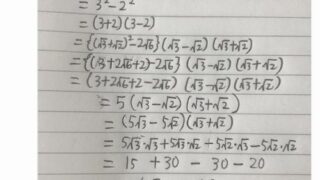 = 3² - 2²
= (3+2)(3-2)
= {(√3+√2)² - 2√6} (√3-√2) (√3+√2)
= {(√3+2√6+2) - 2√6} (√3-√2) (√3+√2)
= (3+2√6+2-2√6) (√3-√2) (√3+√2)
= 5 (√3-√2) (√3+√2)
= (5√3-5√2)(√3+√2)
= 5√3·√3+5√3·√2+5√2·√3-5√2·√2
= 15 + 30 - 30 - 20